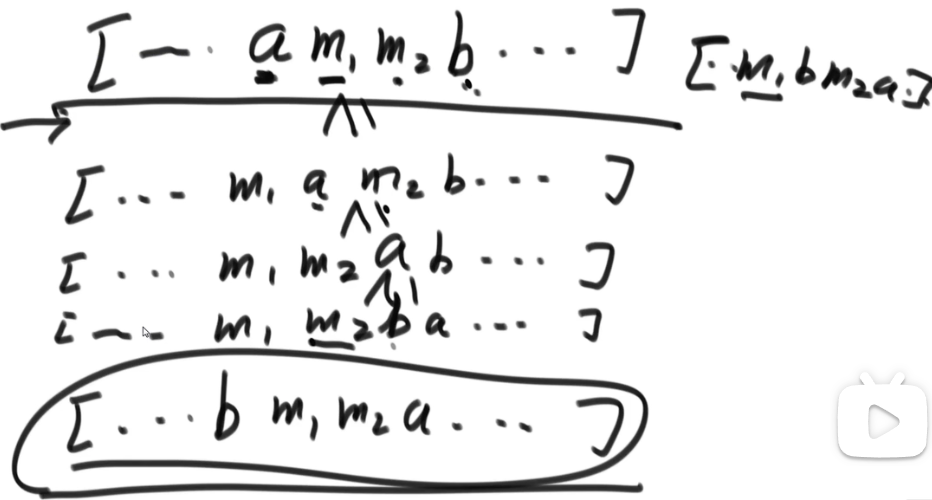 [ — · a m₁ m₂ b · · · · ]
[ · · m₁ b m₂ a · ]
[ · · · — m₁ a m₂ b · · · · ]
[ · · · · m₁ m₂ a b · · · · ]
[ — — m₁ m₂ b a · · · · ]
[ · · · · b m₁ m₂ a · · · · ]